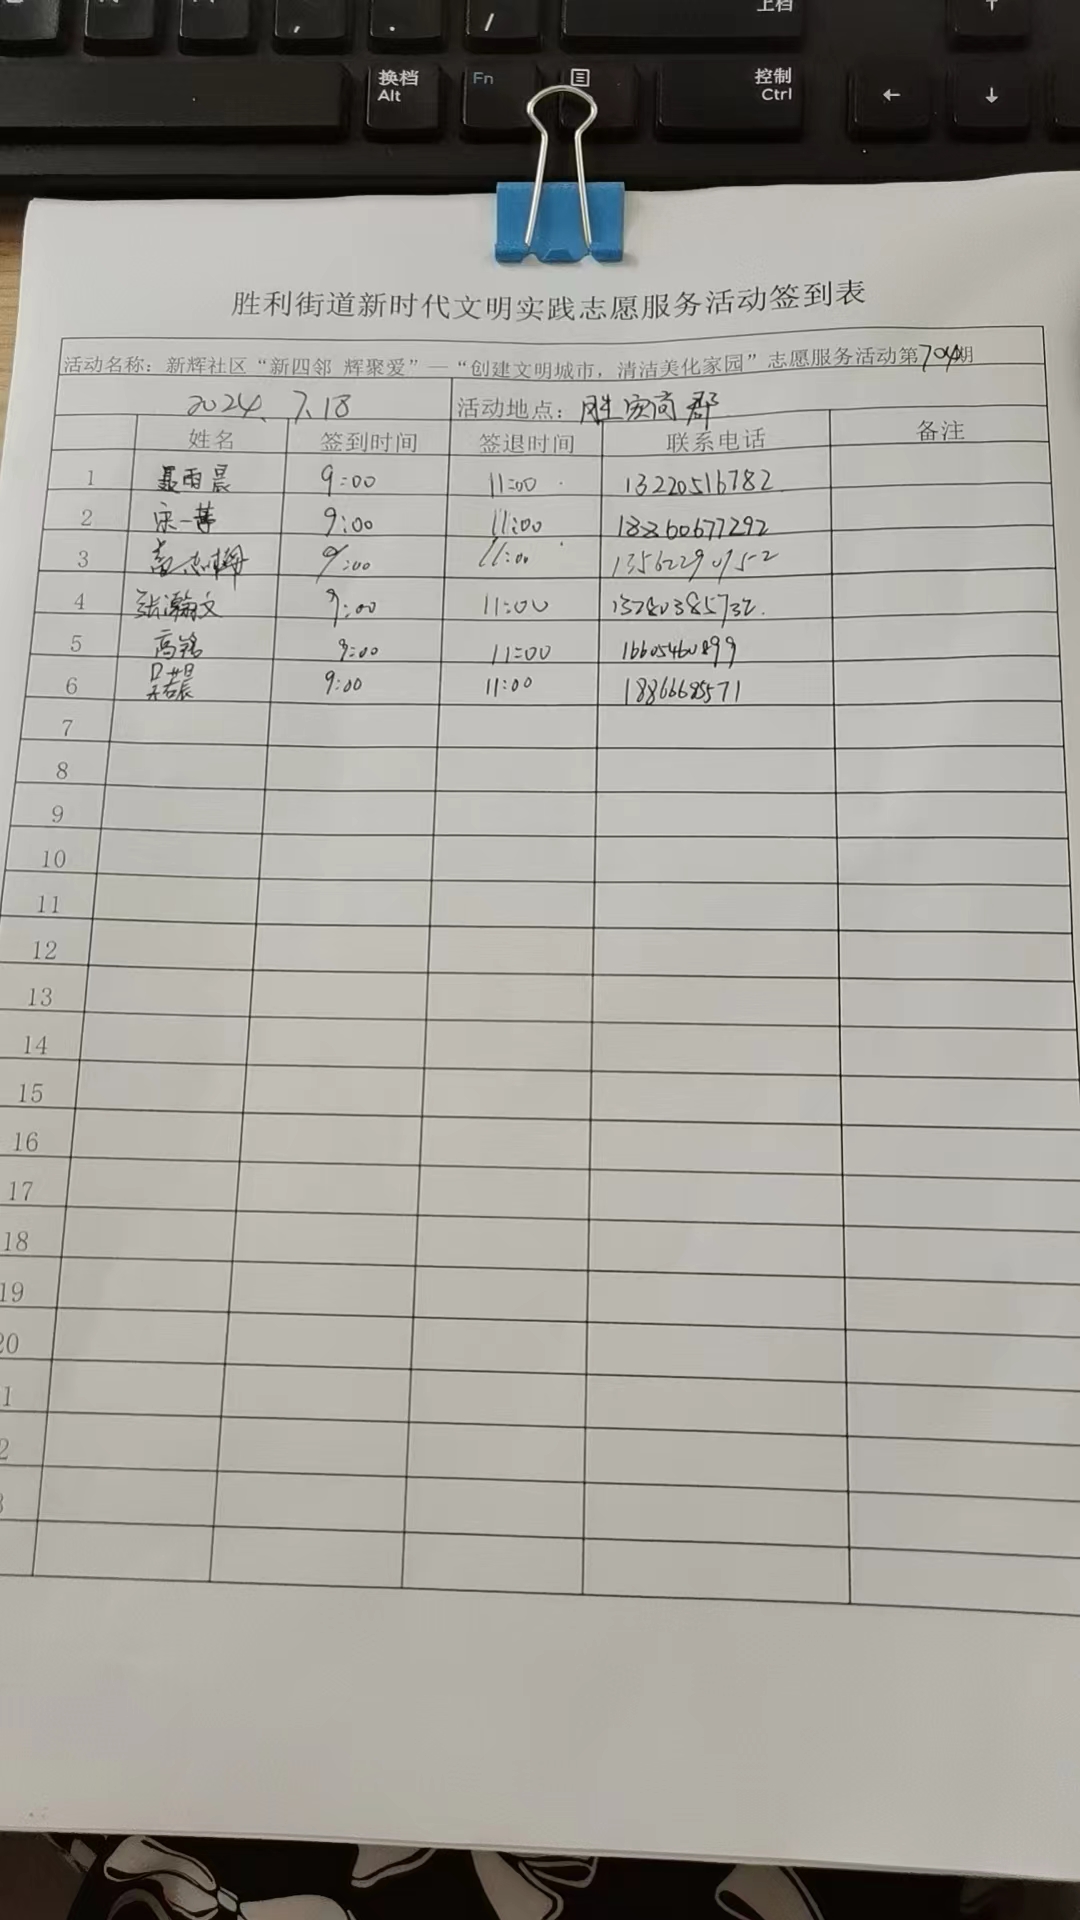 上档
, . /
换档 Fn 控制
Alt Ctrl
← ↓
胜利街道新时代文明实践志愿服务活动签到表
活动名称：新辉社区“新四邻 辉聚爱”—“创建文明城市，清洁美化家园”志愿服务活动第704期
2024.7.18 活动地点：胜宏尚郡
姓名 签到时间 签退时间 联系电话 备注
1 聂雨晨 9:00 11:00 13220516782
2 宋一 9:00 11:00 18860677292
3 9:00 11:00
4 张瀚文 9:00 11:00
5 高铭 9:00 11:00 16605460899
6 吴若晨 9:00 11:00 18866685571
7
8
9
10
11
12
13
14
15
16
17
18
19
20
1
2
3